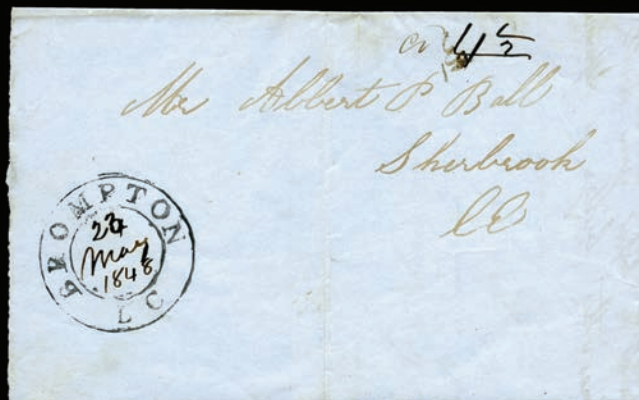 4½
Mr Albert P Ball
Sherbrook
CE
BROMPTON
L C
May
1848